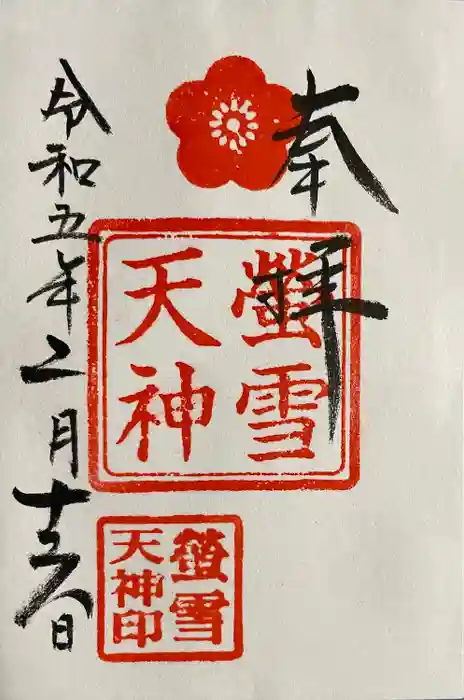 奉拝
螢雪
天神
令和五年二月十六日
螢雪
天神印